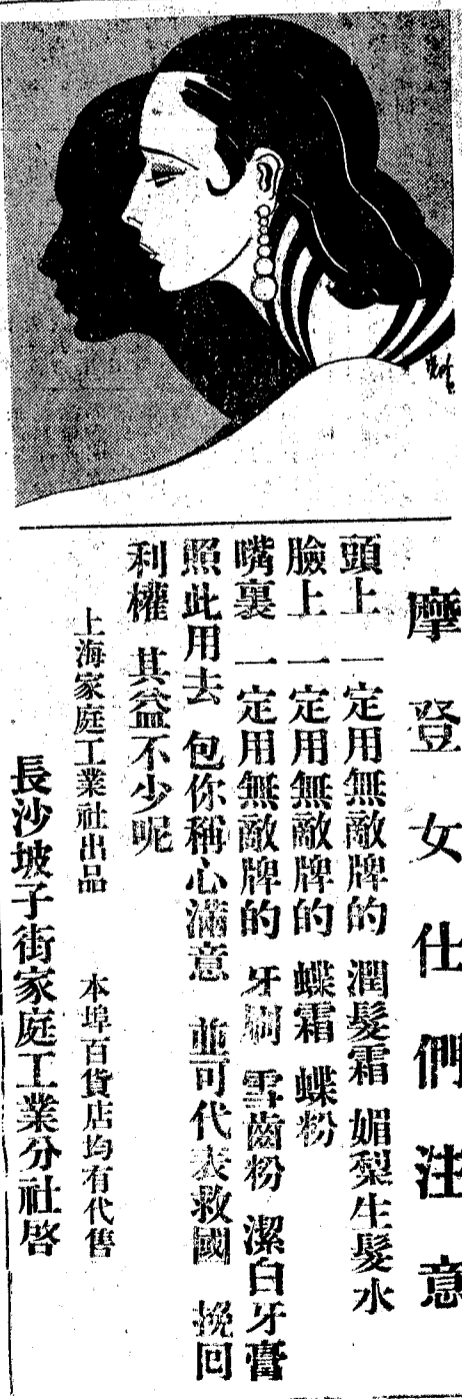 摩登女仕們注意
頭上 一定用無敵牌的 潤髮霜 媚梨生髮水
臉上 一定用無敵牌的 蝶霜 蝶粉
嘴裏 一定用無敵牌的 牙刷 雪齒粉 潔白牙膏
照此用去 包你稱心滿意 並可代表救國 挽回
利權 其益不少呢
上海家庭工業社出品 本埠百貨店均有代售
長沙坡子街家庭工業分社啓